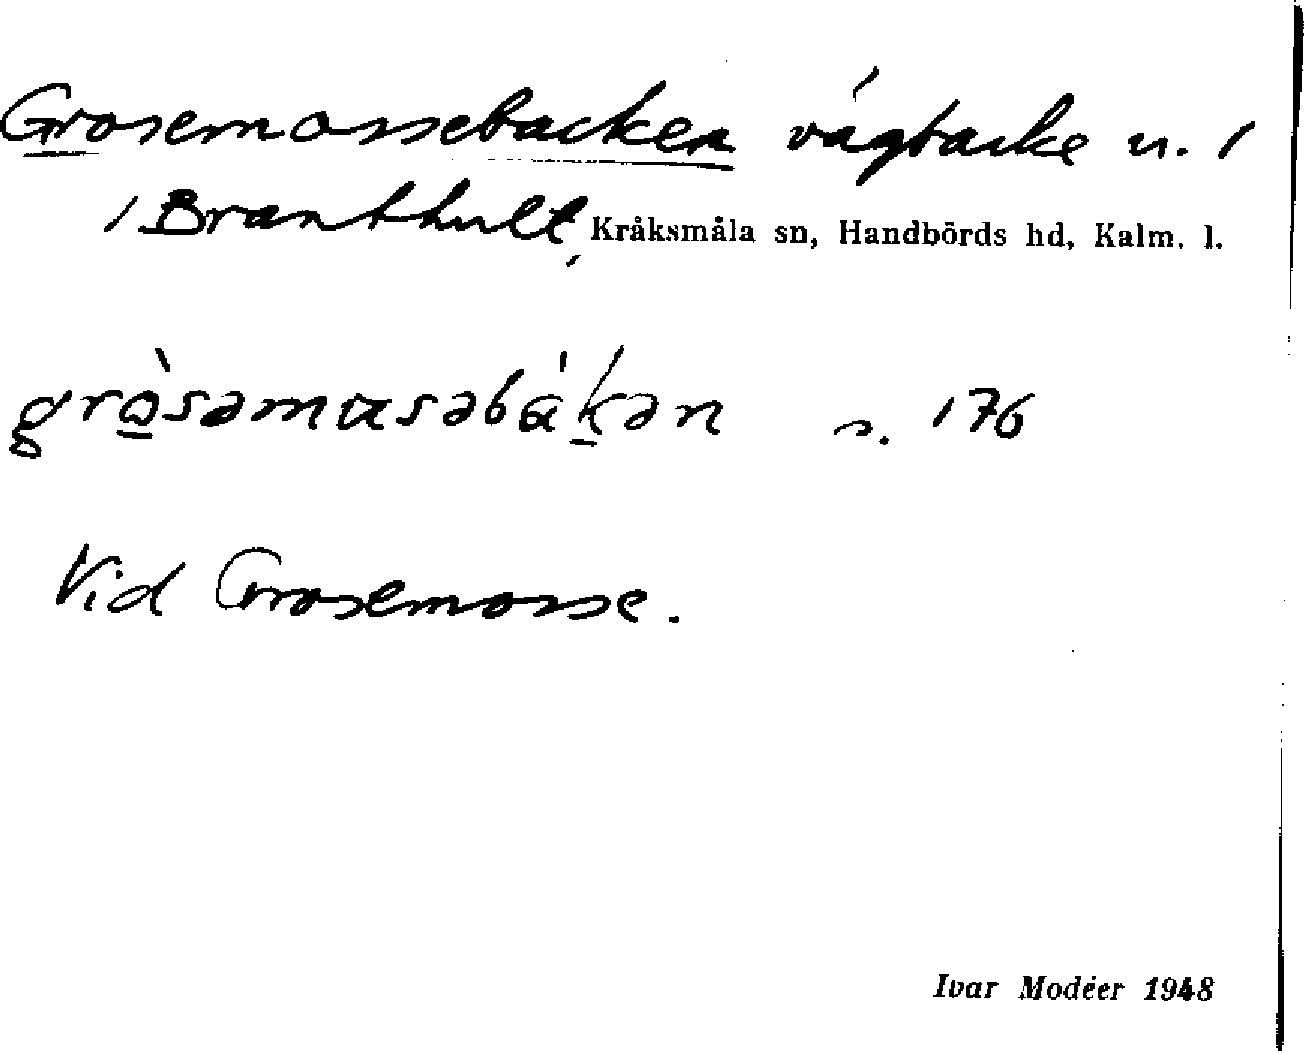 Grosemossebacken vägbacke n. 1
i Branthult, Kråksmåla sn, Handbörds hd, Kalm. l.
grò̱səmɯsəbák̠ən s. 176
Vid Grosemosse.
Ivar Modéer 1948